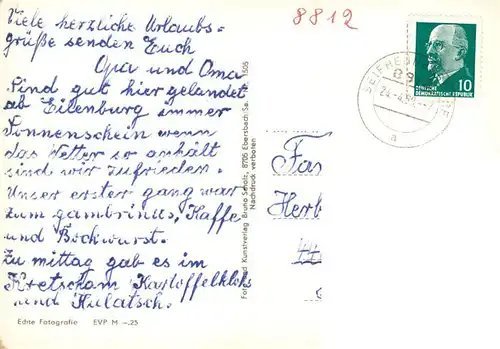 Viele herzliche Urlaubs=
grüße senden Euch
Opa und Oma
Sind gut hier gelandet
ab Eilenburg immer
Sonnenschein wenn
das Wetter so anhält
sind wir zufrieden.
Unser erster gang war
zum gambrinus, Kaffe
und Bockwurst.
Zu mittag gab es im
Kretscham Kartoffelklöß
und Gulatsch.
Echte Fotografie EVP M –.25
und Kunstverlag Bruno Scholz, 8705 Ebersbach Sa. 1505
Nachdruck verboten
8812
DEUTSCHE
DEMOKRATISCHE REPUBLIK 10
a
Herb